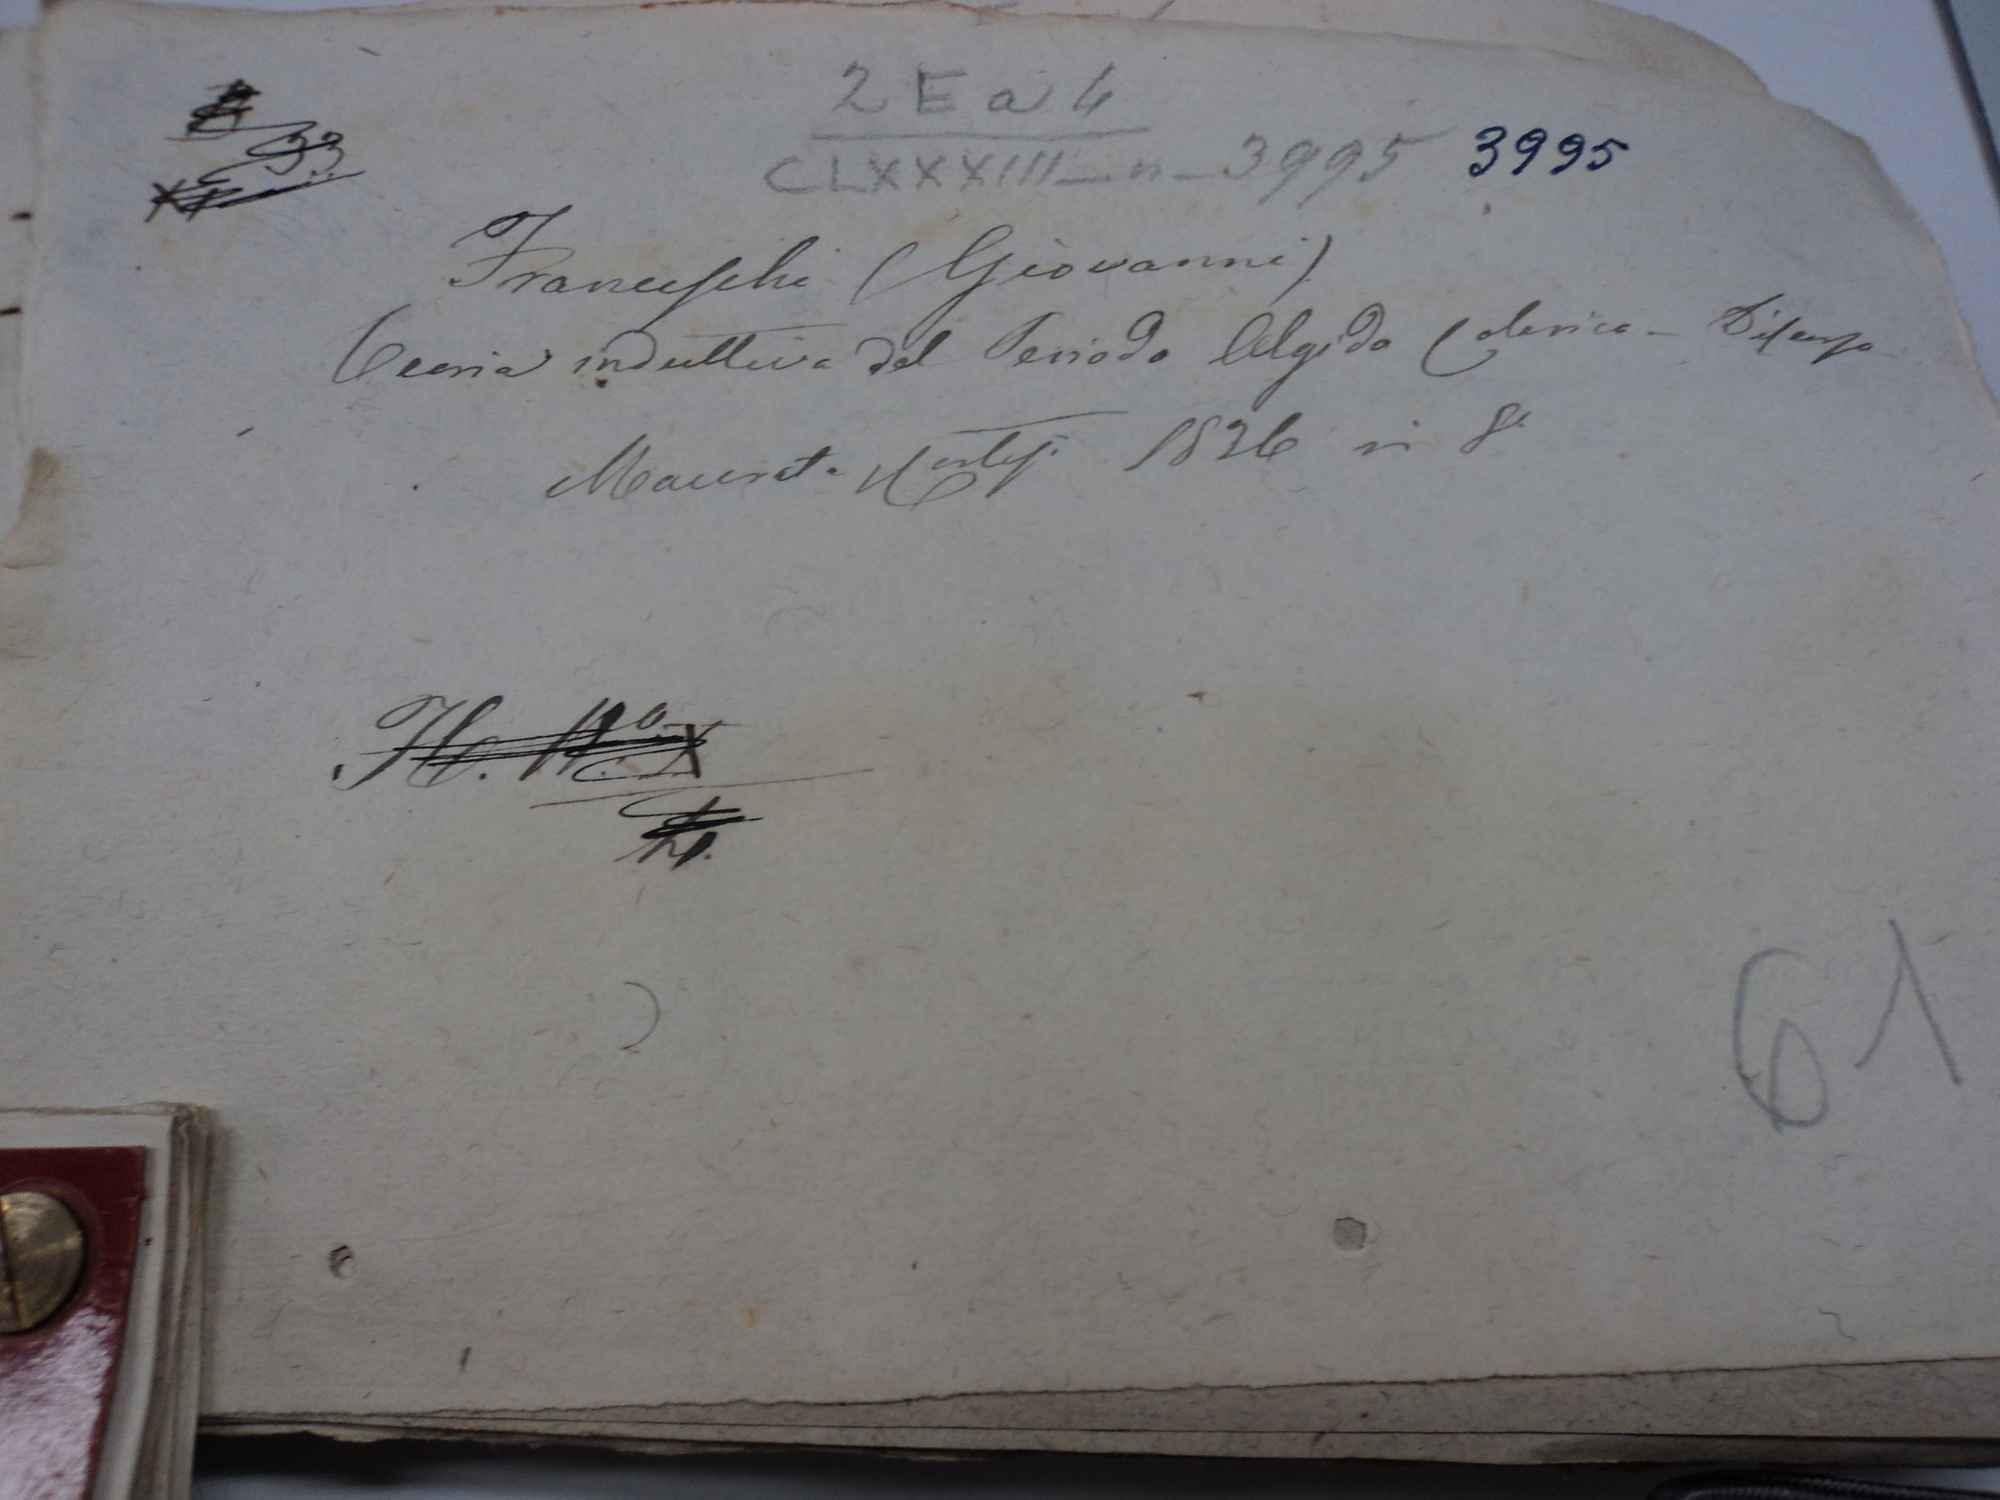 2 E a 4
CLXXXIII - n - 3995 3995
33
Franceschi (Giovanni)
Teoria induttiva del Periodo Algido Colerico - Discorso
Macerata Cortesi 1836 in 8.
61